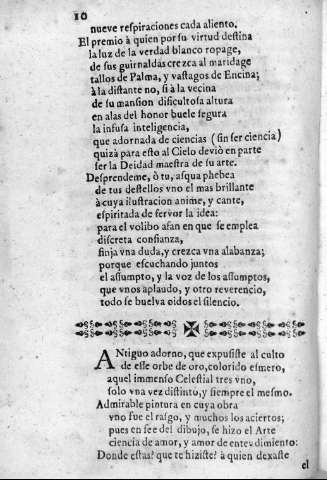 10
nueve respiraciones cada aliento.
El premio à quien por su virtud destina
la luz de la verdad blanco ropage,
de sus guirnaldas crezca al maridage
tallos de Palma, y vastagos de Encina;
à la distante no, si à la vecina
de su mansion dificultosa altura
en alas del honor buele segura
la infusa inteligencia,
que adornada de ciencias (sin ser ciencia)
quizà para esto al Cielo deviò en parte
ser la Deidad maestra de su arte.
Desprendeme, ò tu, asqua phebea
de tus destellos vno el mas brillante
à cuya ilustracion anime, y cante,
espiritada de fervor la idea:
para el volibo afan en que se emplea
discreta confianza,
finja vna duda, y crezca vna alabanza;
porque escuchando juntos
el assumpto, y la voz de los assumptos,
que vnos aplaudo, y otro reverencio,
todo se buelva oidos el silencio.
ANtiguo adorno, que expusiste al culto
de esse orbe de oro, colorido esmero,
aquel immenso Celestial tres vno,
solo vna vez distinto, y siempre el mesmo.
Admirable pintura en cuya obra
vno fue el rasgo, y muchos los aciertos;
pues en fee del dibujo, se hizo el Arte
ciencia de amor, y amor de entendimiento:
Donde estas? que te hiziste? à quien dexaste
el